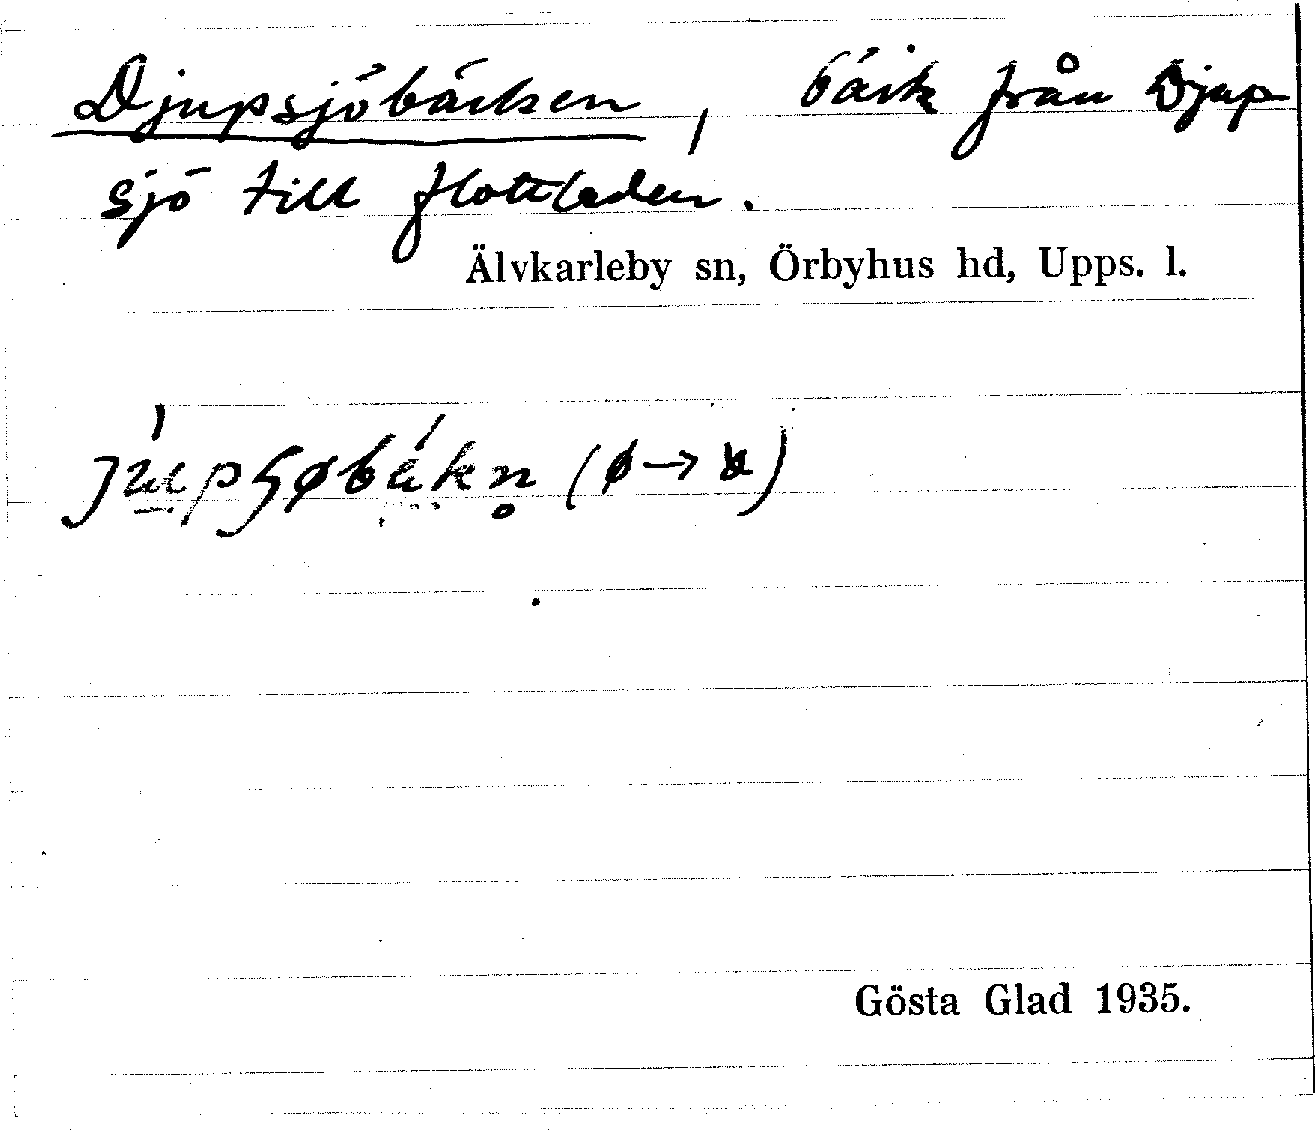 Djupsjöbäcken, bäck från Djup
sjö till flottleden.
Älvkarleby sn, Örbyhus hd, Upps. l.
Gösta Glad 1935.